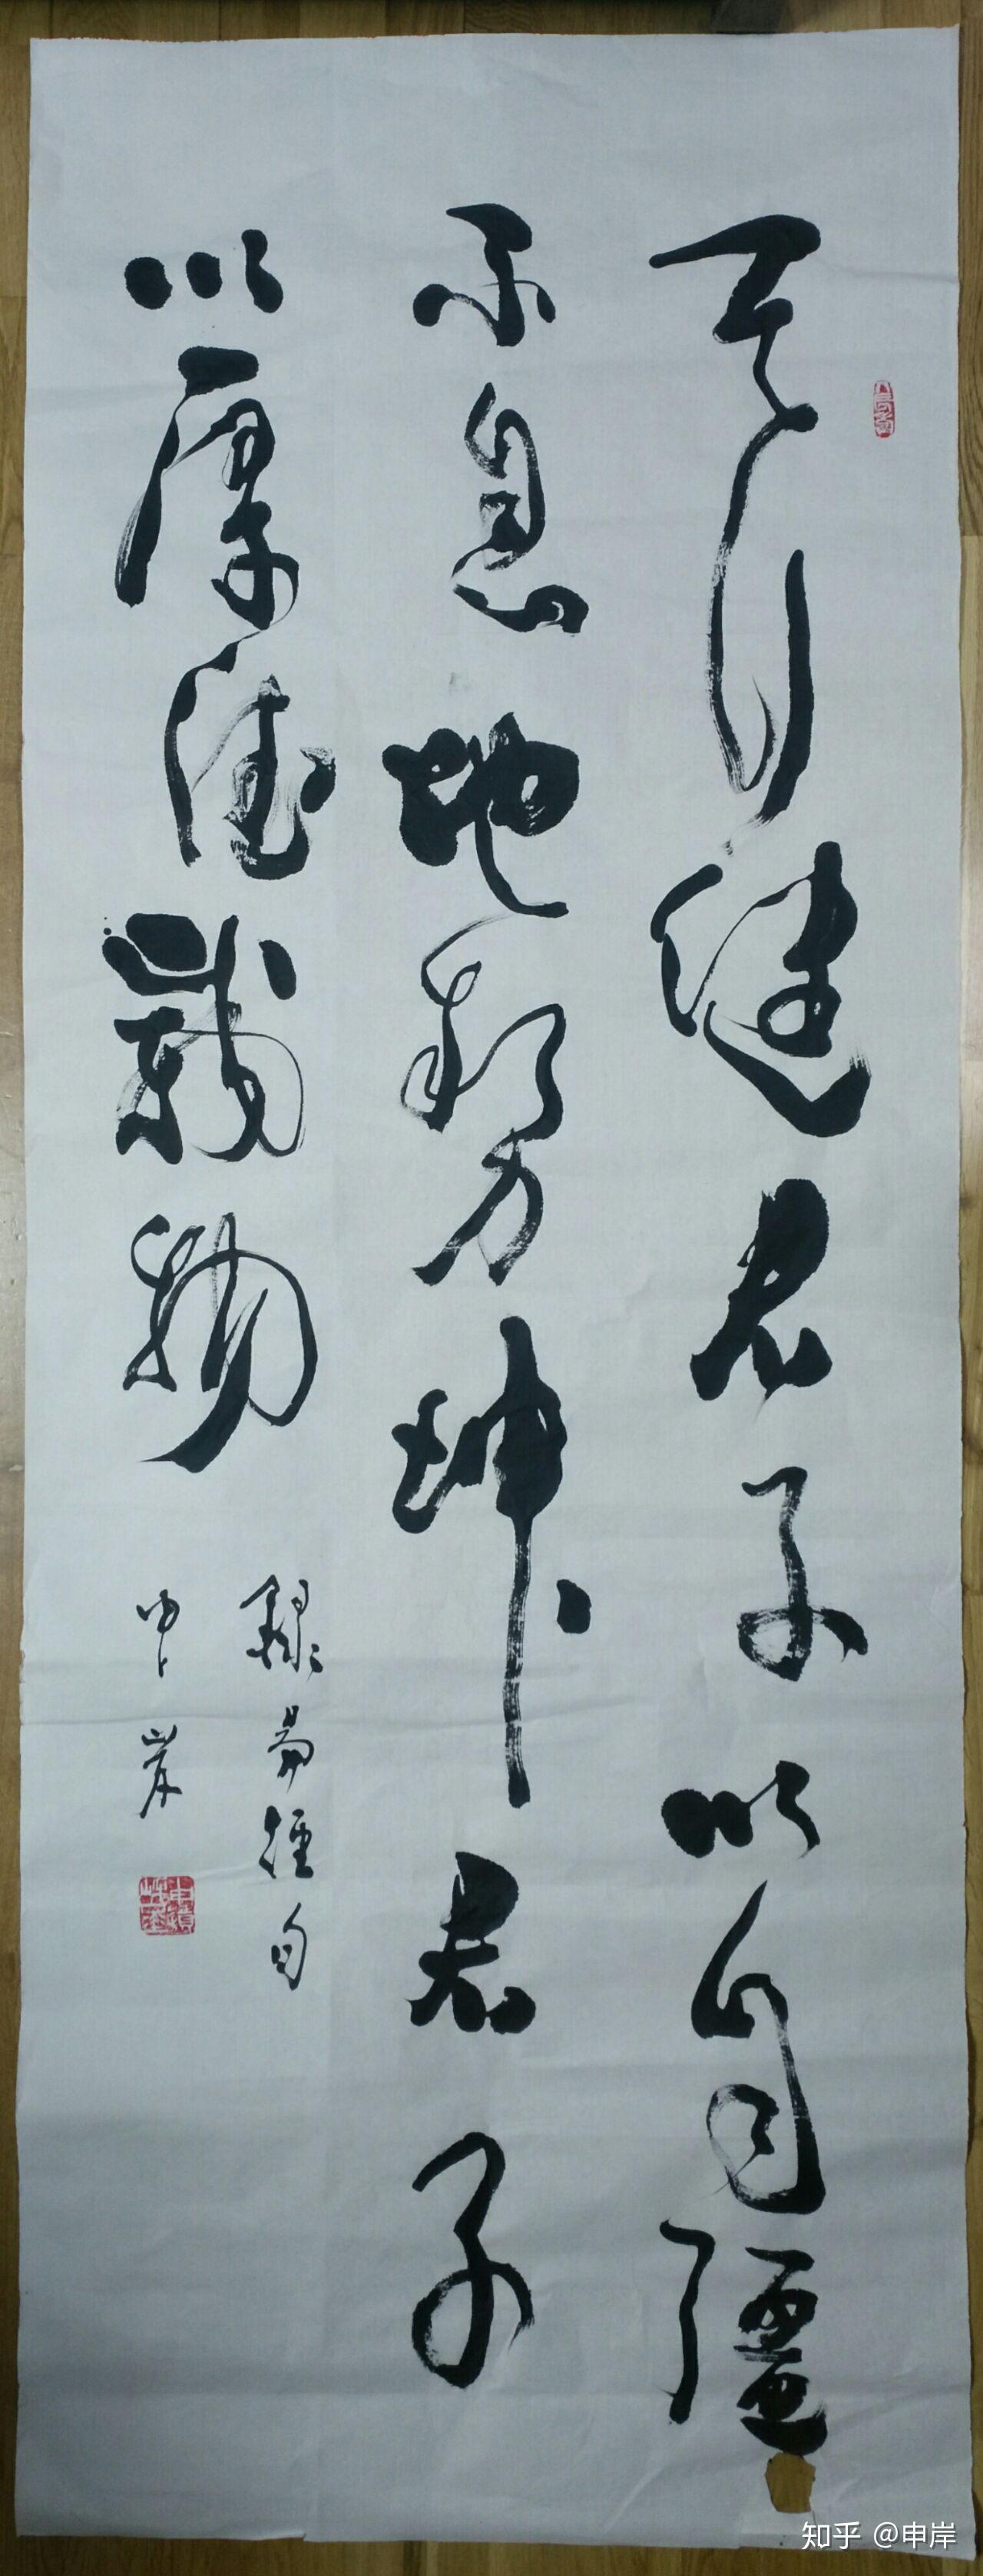 天行健君子以自彊
不息地势坤君子
以厚德载物
録易經句
申岸
知乎 @申岸